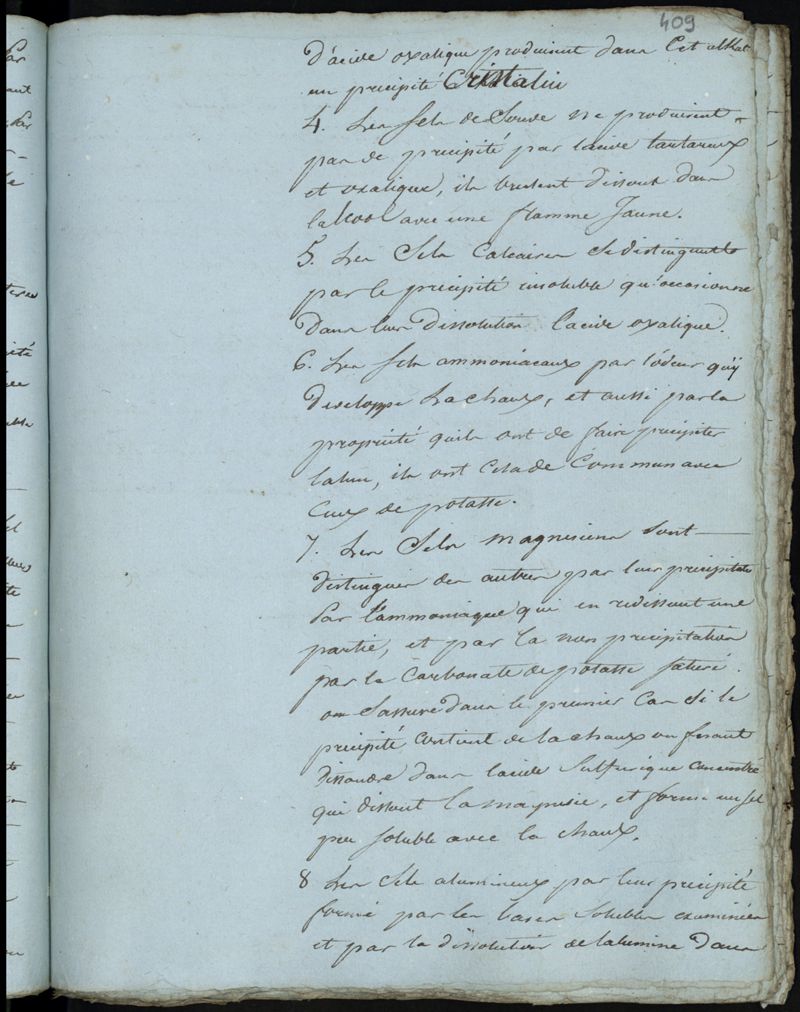 409
d'acide oxalique produisent dans Cet alkal
un precipité Cristalin
4. Les Sels de Soude ne produisent
pas de precipité par lacide tartareux
et oxalique, ils brulent dissout dans
lalkool avec une flamme Jaune.
5. Les Sels Calcaires Se distinguent
par le precipité insoluble qu'occasionne
dans leur dissolution l'acide oxalique.
6. Les Sels ammoniacaux par l'odeur qu'y
developpe La chaux, et aussi par la
propriété quils ont de faire precipiter
lalun, ils ont Cela de Commun avec
Ceux de potasse.
7. Les Sels magnesiens Sont
distinguer des autres par leur precipité
Par l'ammoniaque qui en redissout une
partie, et par la non precipitation
par le Carbonate de potasse saturé.
on Sassure dans le premier Cas Si le
precipité Contient de la chaux en fesant
dissoudre dans lacide Sulfurique concentré
qui dissout la magnesie, et forme un sel
peu soluble avec la chaux.
8 Les Sels alumineux par leur precipité
formé par les bases Solubles examinées
et par la dissolution de lalumine dans